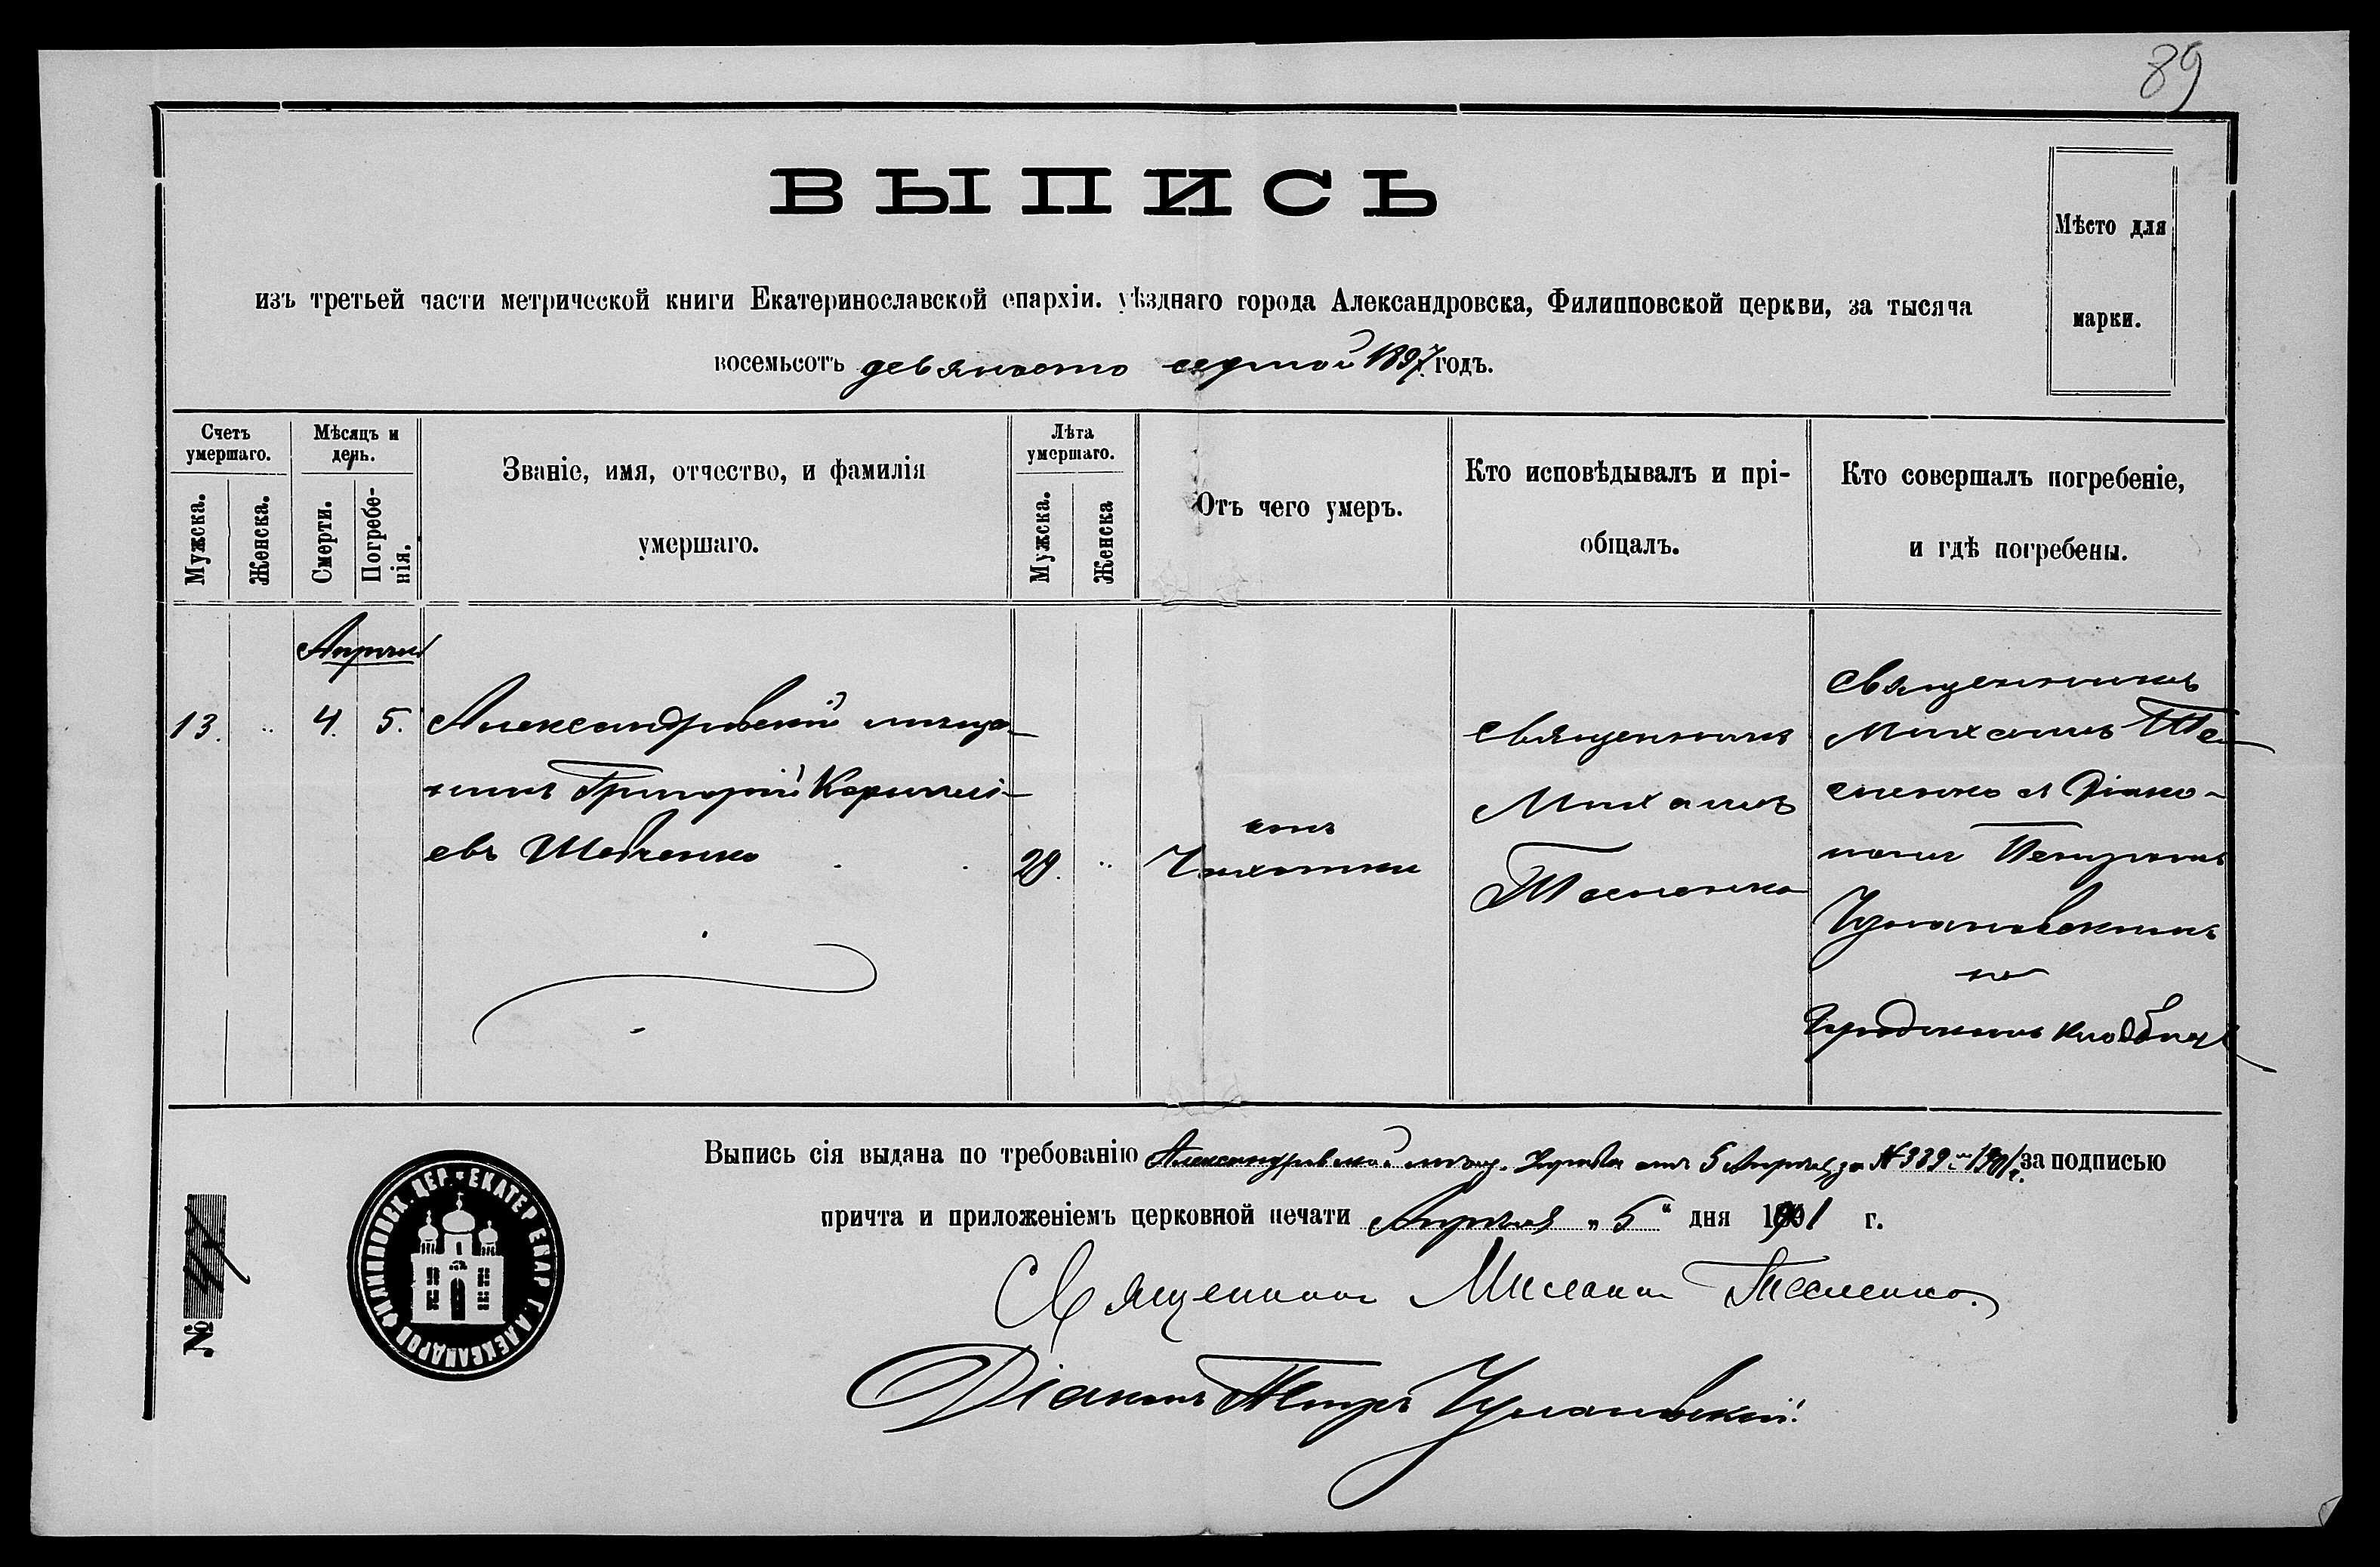 89
ВЫПИСЬ
Мѣсто для
марки.
изъ третьей части метрической книги Екатеринославской епархіи. уѣзднаго города Александровска, Филипповской церкви, за тысяча
восемьсотъ девяносто седмой 1897 годъ.
Счетъ умершаго.
Мужска.
Женска.
Мѣсяцъ и день.
Смерти.
Погребе-
нія.
Званіе, имя, отчество, и фамилія
умершаго.
Лѣта умершаго.
Мужска.
Женска
Отъ чего умеръ.
Кто исповѣдывалъ и прі-
общалъ.
Кто совершалъ погребеніе,
и гдѣ погребены.
Апрѣля
13.
4.
5.
Александровскій мѣща-
нинъ Григорій Корнилі-
евъ Шевченко
29.
отъ
Чахотки
Священникъ
Михаилъ
Священникъ
Михаилъ
и Діако-
номъ Петромъ
Чулановскимъ
на
Городскомъ кладбищѣ
Выпись сія выдана по требованію Александровской мѣщ. Управы отъ 5 Апрѣля за № 339 1901 г. за подписью
причта и приложеніемъ церковной печати Апрѣля „5“ дня 1901 г.
№ 47
ФИЛИППОВСК. ЦЕР. ЕКАТЕР ЕПАР Г. АЛЕКСАНДРОВ
Священникъ Михаилъ
Діаконъ Петръ Чулановскій.